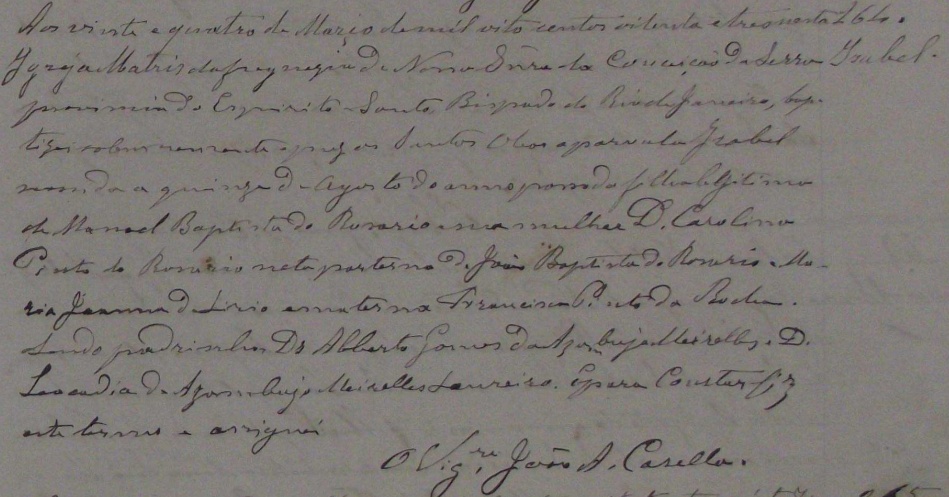 Aos vinte e quatro de Março de mil oito centos oitenta e tres nesta 264.
Igreja Matris da freguezia de Nossa Snra da Conceição da Serra Izabel.
provincia do Espirito Santo Bispado do Rio de Janeiro, bap-
tizei solemnemente e puz os Santos Oleos a parvula Izabel
nascida a quinze de Agosto do anno passado filha legitima
de Manoel Baptista do Rosario e sua mulher D. Carolina
Pinto do Rosario neta paterna de João Baptista do Rosario e Ma-
ria Joanna de Lirio e materna Francisca Pinto da Rocha.
Sendo padrinhos Dr Alberto Gomes da Azambuja Meirelles e D.
Leocadia de Azambuja Meirelles Loureiro. E para Constar fiz
este termo e assignei
O Vigr.e João A. Casella.
265